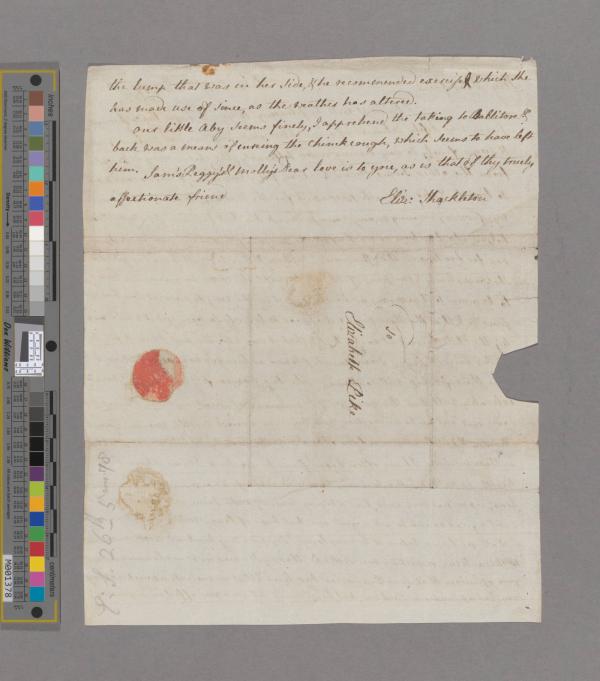 the lump that was in her side, & he recommended exercise, which she
has made use of since, as the weather has altered.
our little Aby seems finely, I apprehend the taking to Ballitore &
back was a means of curing the chink cough, which seems to have left
him. Sam's Peggy's & Molly's dear love is to you, as is that of thy truly
affectionate friend
Eliz: Shackleton
To
Elizabeth Pike
26th
M001378
inches
centimeters